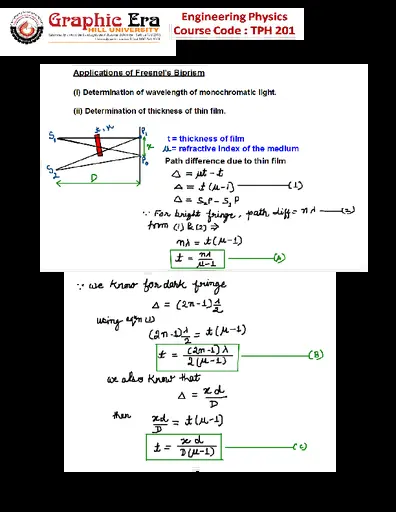 Graphic Era
HILL UNIVERSITY
Engineering Physics
Course Code : TPH 201
Applications of Fresnel's Biprism
(i) Determination of wavelength of monochromatic light.
(ii) Determination of thickness of thin film.
t, μ
S₁ P₁
x
P₀
S₂
D
t = thickness of film
μ = refractive index of the medium
Path difference due to thin film
Δ = μt - t
Δ = t(μ-1) —(1)
Δ = S₂P - S₁P
∵ For bright fringe, path diff = nλ —(2)
from (1) & (2) ⇒
nλ = t(μ-1)
t = nλ/(μ-1) —(A)
∵ we know for dark fringe
Δ = (2n-1)λ/2
using eqn (1)
(2n-1)λ/2 = t(μ-1)
t = (2n-1)λ/2(μ-1) —(B)
we also know that
Δ = xd/D
then xd/D = t(μ-1)
t = xd/D(μ-1) —(C)